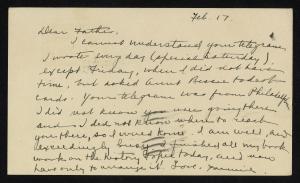 Feb. 17.
Dear Father,
I cannot understand your telegram.
I wrote every day (special Saturday),
except Friday, when I did not have
time, but asked Aunt Bessie to send
cards. Your telegram was from Philadelphia
I did not know you were going there
and I did not know when to reach
you there, so I wired home. I am well, and
exceedingly busy. I finished all my book
work on the history topic today, and now
have only to arrange it. Love.